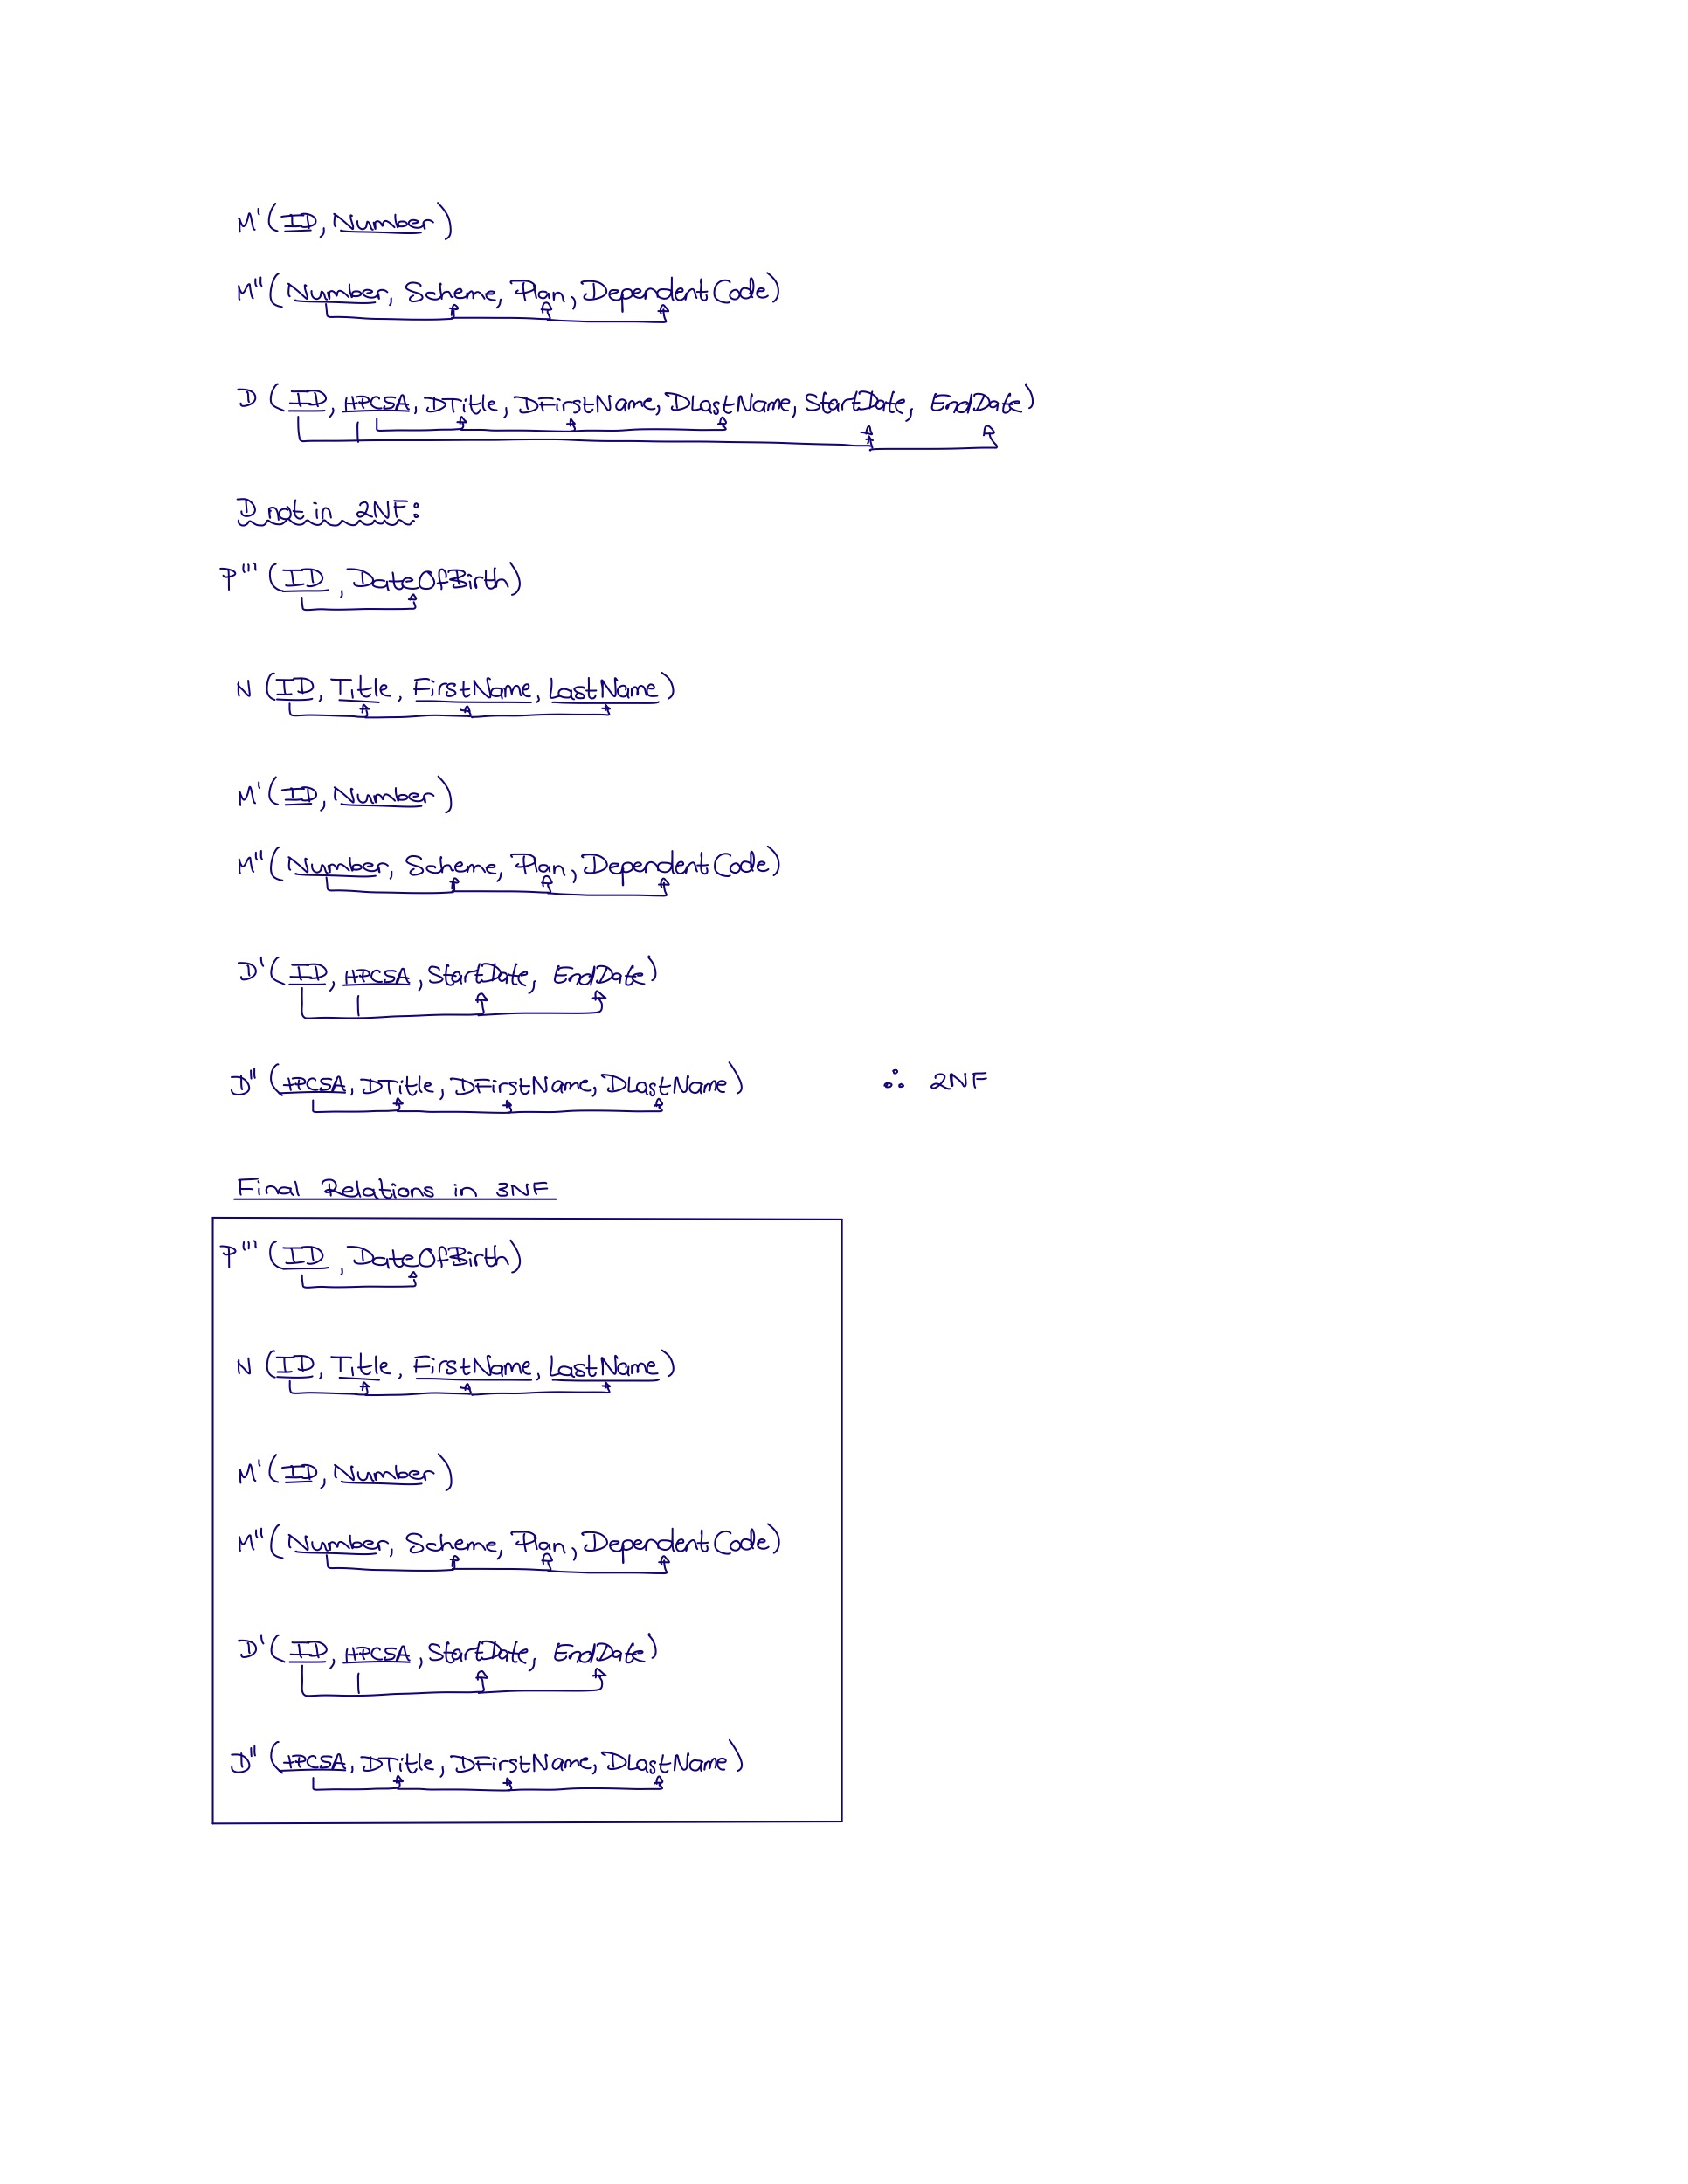 M' (ID, Number)
M'' (Number, Scheme, Plan, DependentCode)
D (ID, HPCSA, DTitle, DFirstName, DLastName, StartDate, EndDate)
D not in 2NF:
P''' (ID, DateOfBirth)
N (ID, Title, FirstName, LastName)
M' (ID, Number)
M'' (Number, Scheme, Plan, DependentCode)
D' (ID, HPCSA, StartDate, EndDate)
D'' (HPCSA, DTitle, DFirstName, DLastName) ∴ 2NF
Final Relations in 3NF
P''' (ID, DateOfBirth)
N (ID, Title, FirstName, LastName)
M' (ID, Number)
M'' (Number, Scheme, Plan, DependentCode)
D' (ID, HPCSA, StartDate, EndDate)
D'' (HPCSA, DTitle, DFirstName, DLastName)